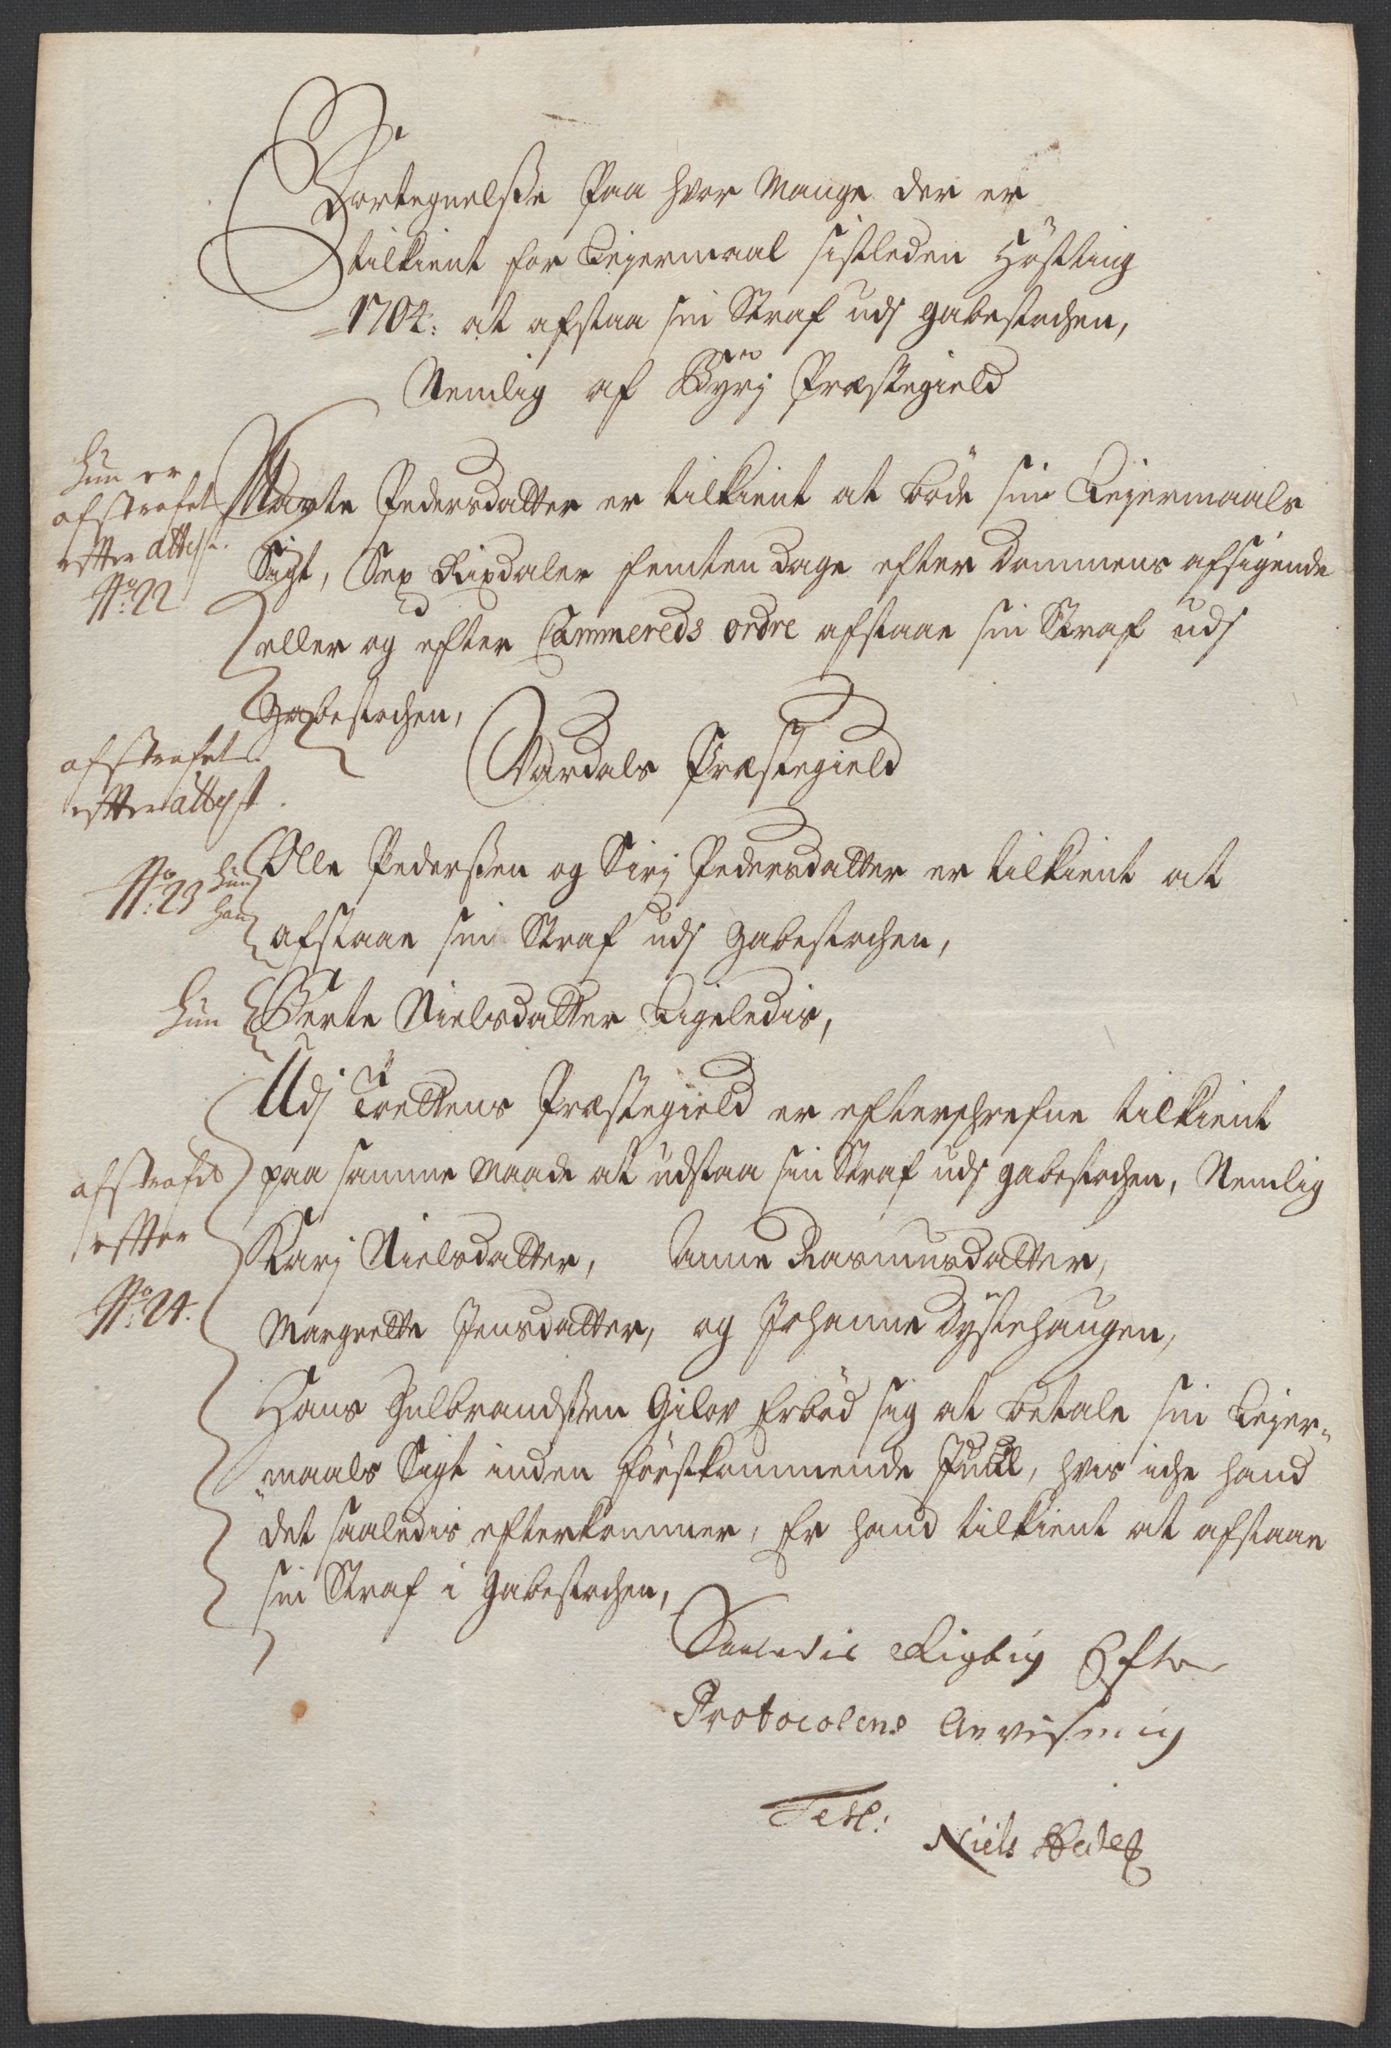 Fortegnelsse Paa hvor Mange der er
tilkient for Leyermaal sistleden Høsting
1704: at afstaa sin Straf udj gabestochen,
Nemlig af Byrj Præstegield
hun er
afstrafet
efter attest.
No: 22
Marte Pedersdatter er tilkient at bøde sin Leyermaals
Sigt, Sex Rixdaler femten dage efter dommens afsigende
eller og efter Cammereds ordre afstaae sin Straf udj
Gabestochen,
Vardals Præstegield
afstrafet
efter attest.
No: 23 hun
han
Olle Pederssen og Sirj Pedersdatter er tilkient at
afstaae sin Straf udj Gabestochen,
hun
Berte Nielsdatter Ligeledis,
Udj Tottens Præstegield er efterschrefne tilkient
paa samme maade at udstaa sin Straf udj gabestochen, Nemlig
afstrafet
efter
No: 24.
Karj Nielsdatter, Anne Rasmusdatter,
Margrette Jensdatter, og Johanne Dystehaugen,
Hans Gulbrandssen Gilov Erbød sig at betale sin Leyer-
maals Sigt inden førstkommende Juul, hvis iche hand
det saaledis efterkommer, Er hand tilkient at afstaae
sin Straf i Gabestochen,
Saaledis Rigtig Efter
Protocolens Anvisning
Test:
Niels